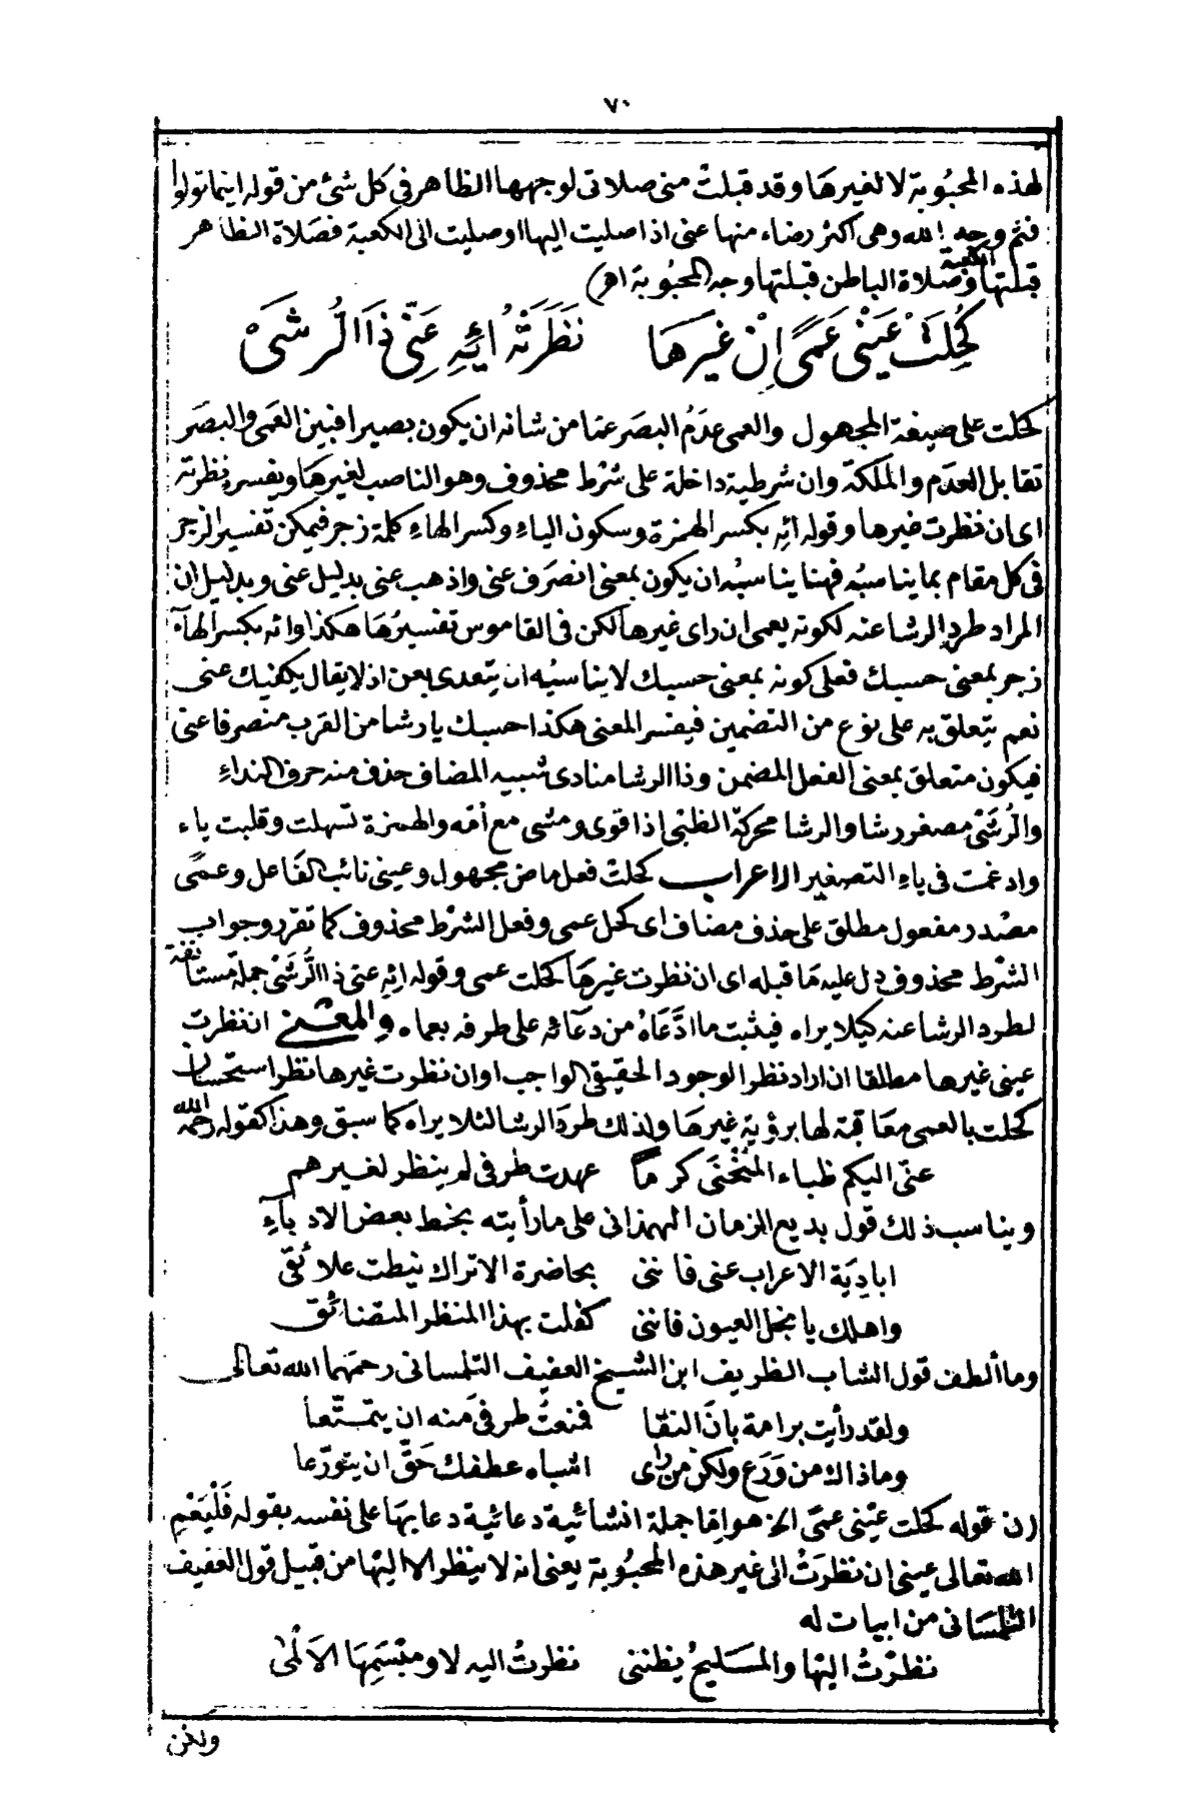 ٧٠
لهذه المحبُوبة لا لغيرها وقد قبلتْ منى صلاتى لوجهها الظاهر فى كل شئ من قوله اينما تولوا
فثم وجه الله وهى اكثر رضاء منها عنى اذا صليت اليها اوصليت الى الكعبة فصلاة الظاهر
قبلتها الكعبة وصلاة الباطن قبلتها وجه المحبُوبة اهر)
كُحِلَتْ عَيْنى عَمًى اِنْ غيرَهَا نَظَرَتْهُ ائِهِ عَنّى ذَا الرُشَىْ
كحلت على صيغة المجهول والعمى عدَمُ البصَر عمّا من شانه ان يكون بصيرا فبين العَمى والبصَر
تقابل العدَم والملكة وان شرطية داخلة على شرْط محذوف وهو الناصب لغيرهَا ويفسره نظرته
اى ان نظرت غيرها وقوله ائِه بكسر الهمزة وسكون الياءِ وكسر الهاءِ كلمة زجر فيمكن تفسير الزجر
فى كل مقام بما يناسبُه فهنا يناسبُه ان يكون بمعنى انصَرَف عنى واذهب عنى بدليل عنى وبدليل ان
المراد طرد الرشا عنه لكونه يعمى ان راى غيرها لكن فى القاموس تفسيرُهَا هكذا وائه بكسر الهاۤء
زجر بمعنى حسبك فعلى كونه بمعنى حسبك لا يناسبُه ان يتعدى بعن اذ لا يقال يكفيك عنى
نعم يتعلق به على نوع من التضمين فيفسر المعنى هكذا حسبك يا رشا من القرب منصرفا عنى
فيكون متعلق بمعنى الفعل المضمن وذا الرشا منادى شبيه المضاف حذف منه حرف النداءِ
والرُشَىْ مصغر رشا والرشا محركة الظبى اذا قوى ومشى مع أمّه والهمزة تسهلت وقلبت ياء
وادغمت فى ياءِ التصغير الاعراب كحلتْ فعل ماض مجهول وعينى نائب الفَاعل وعمًى
مصْدر مفعول مطلق على حذف مضاف اى كحل عمى وفعل الشرْط محذوف كما تقرّر وجواب
الشرْط محذوف دل عليه مَا قبله اى ان نظرت غيرهَا كحلت عمى وقوله ائِهِ عنى ذا الرُّشَىْ جملة مستأنفة
لطرد الرشا عنه كيلا يراه فيثبت ما ادَّعَاهُ من دعائه على طرفه بعماه والمعْنى ان نظرت
عينى غيرها مطلقا ان اراد نظر الوجود الحقيقى الواجب او ان نظرت غيرها نظر استحسان
كحلت بالعمى معَاقبة لها برؤية غيرهَا ولذلك طردَ الرشا لئلا يراه كما سبق وهذا كقوله رحمه الله
عنّى اليكم ظباء المُنْحَنَى كرمًا عهدت طرفى لم ينظر لغيرهم
ويناسب ذلك قول بديع الزمان الهمذانى على ما رأيته بخط بعض الادباۤءِ
اباديَة الاعراب عنى فاننى بحاضرة الاتراك نيطت علائقى
واهلك يا نجل العيون فاننى كفلت بهذا المنظر المتضائق
وما ألطف قول الشاب الظريف ابن الشيخ العفيف التلمسانى رحمهما الله تعالى
ولقد رأيت برامة بانَ النقا فمنعتُ طرفى منه ان يتمتّعا
وما ذاك من وَرَع ولكن من رأى اشباه عطفك حَقّ ان يتورّعا
(ن قوله كحلت عَيْنى عمًى الخ هو اما جملة انشائية دعائية دعا بهَا على نفسه بقوله فَلْيَعْمِ
الله تعالى عينى ان نظرَتْ الى غير هذه المحبُوبة يعنى انه لا ينظر الا اليها من قبيل قول العفيف
التلمسَانى من ابيات له
نظرْتُ اليها والمسَليحُ يظننى نظرتُ اليه لا ومَبْسَمِهَا الاَلْمٰى
ولكن